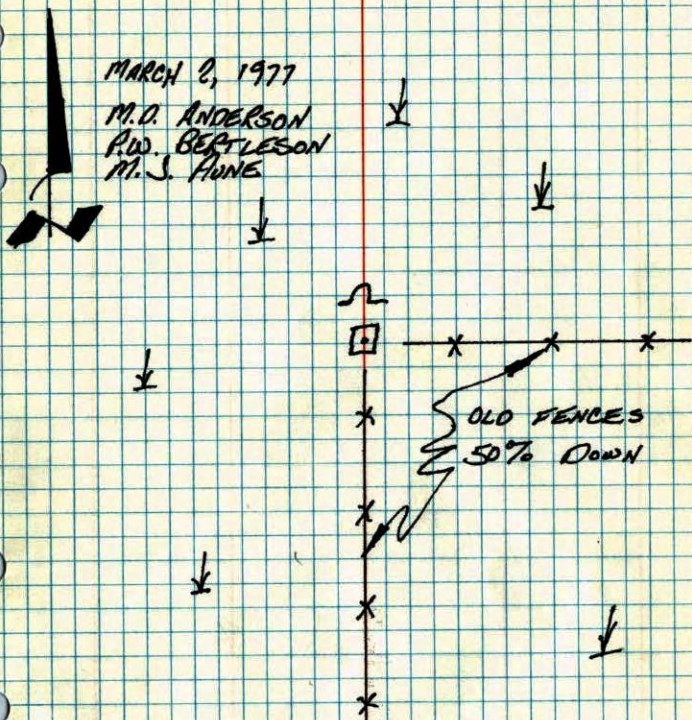 MARCH 2, 1977
M.D. ANDERSON
P.W. BERTLESON
M.J. AUNE
OLD FENCES
50% DOWN